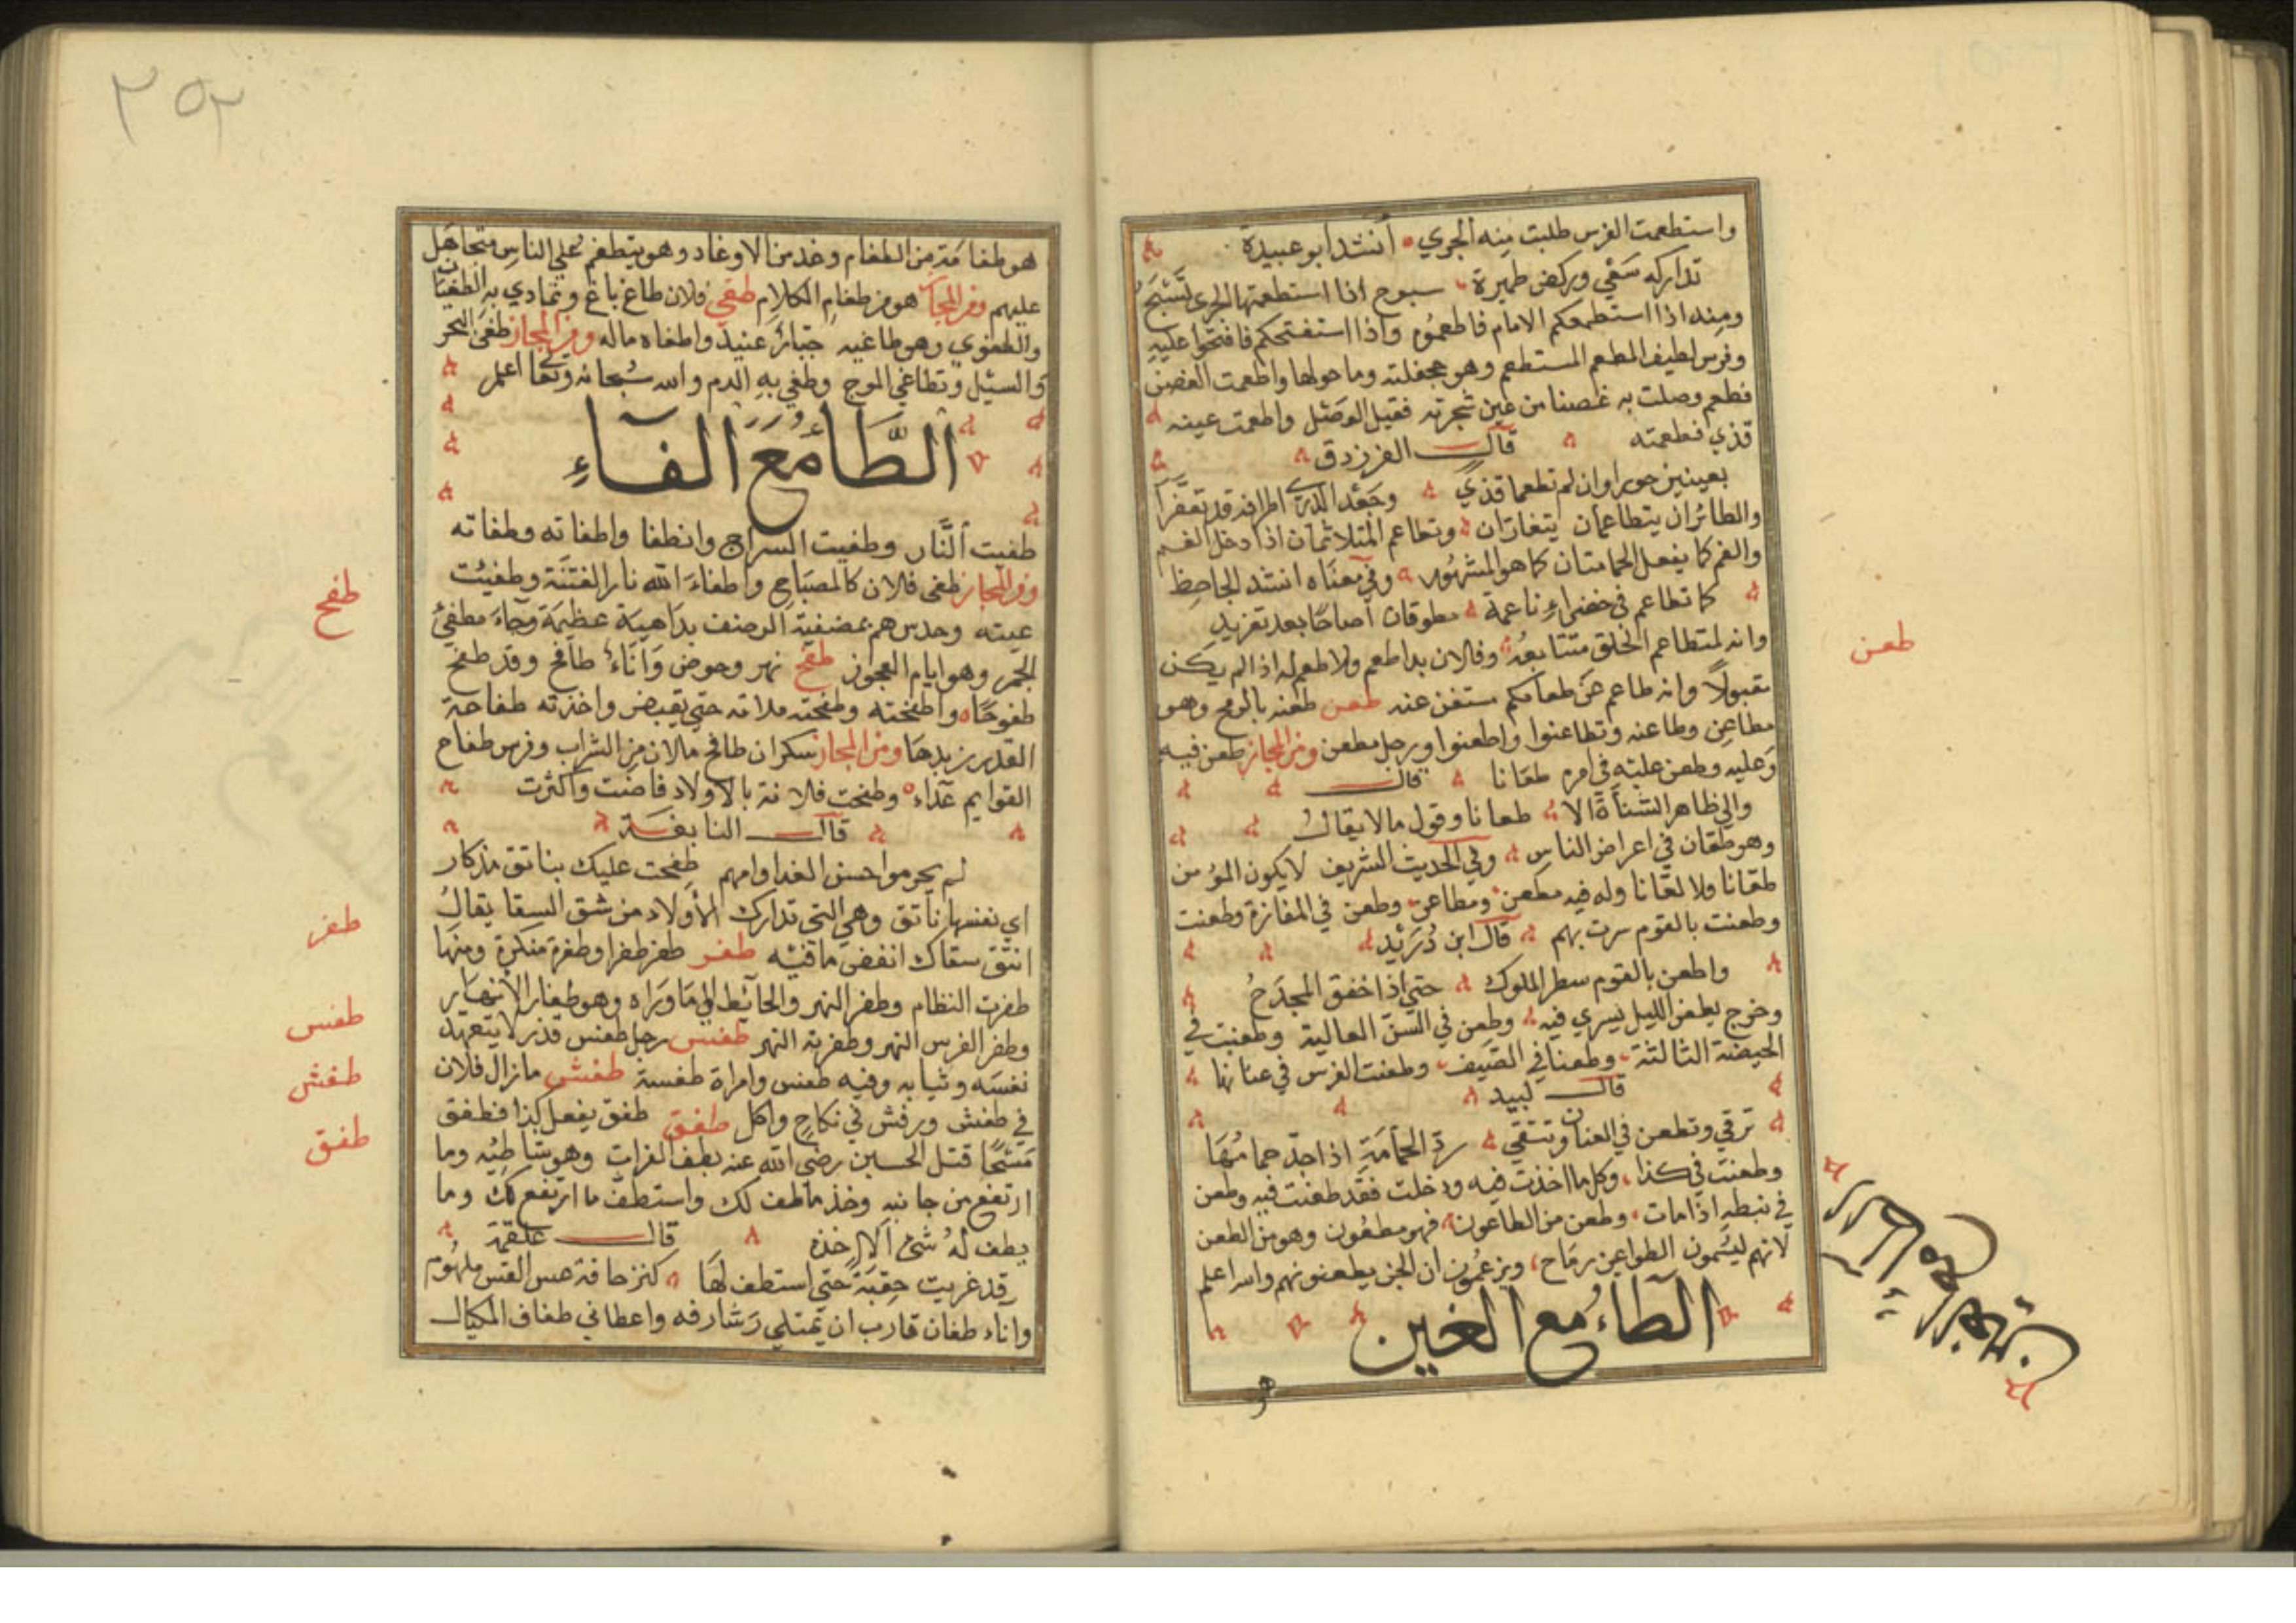 واستطعمت الفرس طلبت منه الجري أنشد ابو عبيدة
تداركه سعي وركض طمرة سبوح اذا استطعمتها الجري تسبح
ومنه اذا استطعمكم الامام فاطعموه واذا استفتحكم فافتحوا عليه
وفرس لطيف المطعم المستطعم وهو جحفلته وما حولها واطعمت الغصن
فطعم وصلت به غصنا من غير شجرته فقبل الوصل واطعمت عينه
قذي فطعمته قال الفرزدق
بعينين حوراوان لم تطعما قذي وجعد الذرى اطرافه قد تعفرا
والطائران يتطاعمان يتغاران وتطاعم المتلاثمان اذا دخل الفم
والفم كما يفعل الحمامتان كما هو المشهور وفي معناه انشد الجاحظ
كما تطاعم في خضراء ناعمة مطوقان أصاخا بعد تغريد
وانه لمتطاعم الخلق متتابعه وفلان بدا طعم ولا طعم له اذا لم يكن
مقبولا وانه طاعم عن طعامكم مستغن عنه طعن طعنه بالرمح وهو
مطاعن وطاعنه وتطاعنوا واطعنوا ورجل مطعن ومن المجاز طعن فيه
وعليه وطعن عليه في امره طعانا قال
والي ظاهر الشناة الا طعانا وقول مالا يقال
وهو طعان في اعراض الناس وفي الحديث الشريف لا يكون المؤمن
طعانا ولا لعانا وله فيه مطعن ومطاعن وطعن في المفازة وطعنت
وطعنت بالقوم سرت بهم قال ابن دريد
واطعن بالقوم سطر الملوك حتي اذا خفق المجدح
وخرج يطعن الليل يسري فيه وطعن في السن العالية وطعنت في
الحيضة الثالثة وطعنا في الصيف وطعنت الفرس في عنانها
قال لبيد
ترقي وتطعن في العنان وتنتقي رد الحمامة اذا جد حمامها
وطعنت في كذا وكل ما اخذت فيه ودخلت فقد طعنت فيه وطعن
في نبطه اذا مات وطعن من الطاعون فهو مطعون وهو من الطعن
لانهم ليسمون الطواعين رماح ويزعمون ان الجن يطعنونهم والله اعلم
الطاء مع الغين
هو
طعن
٢٥٢
هو طغامة من الطغام وغد من الاوغاد وهو يتطغم علي الناس متجاهل
عليهم ومن المجاز هو من طغام الكلام طغي فلان طاغ باغ وتمادي به الطغيان
والطغوي وهو طاغيه جبار عنيد واطغاه ماله ومن المجاز طغي البحر
والسيل وتطاغي الموج وطغي به الدم والله سبحانه وتعالى اعلم
الطاء مع الفاء
طفيت النار وطفيت السراج وانطفا واطفاته وطفاته
ومن المجاز طفى فلان كالمصباح واطفاء الله نار الفتنة وطفيئت
عينه وحدس هم بمضفية الرضف بداهية عظيمة وجاء مطفئ
الجمر وهو ايام العجوز طفح نهر وحوض واناء طافح وقد طفح
طفوحا واطفحته وطفحته ملاته حتي يفيض واخذته طفاحة
القدر زبدها ومن المجاز سكران طافح ملان من الشراب وفرس طفاح
القوايم عداء وطفحت فلانة بالاولاد فاضت واكثرت
قال النابغة
لم يحرموا حسن الغدا وامهم طفحت عليك بناتق مذكار
اي نفسها ناتق وهي التي تدارك الأولاد من شق السقا يقال
انتق سقاك انفض ما فيه طفر طفر طفرا وطفرة منكرة ومنها
طفرت النظام وطفر النهر والحائط الي ما وراه وهو طفار الأنهار
وطفر الفرس النهر وطفرته النهر طفس رجل طفس قذر لا يتعهد
نفسه وثيابه وفيه طفس وامراة طفسة طفش مازال فلان
في طفش ورفش في نكاح واكل طفق طفق يفعل كذا فطفق
مسحا قتل الحسين رضي الله عنه بطف الفرات وهو شاطئه وما
ارتفع من جانبه وخذ ما طف لك واستطف ما ارتفع لك وما
يطف له شئ الا اخذه قال علقمة
قد عريت حقبة حتي استطف لها كتر حافة عس القس ملموم
واناء طفان قارب ان يمتلي وشارفه واعطاني طفاف المكيال
طفح
طفر
طفس
طفش
طفق